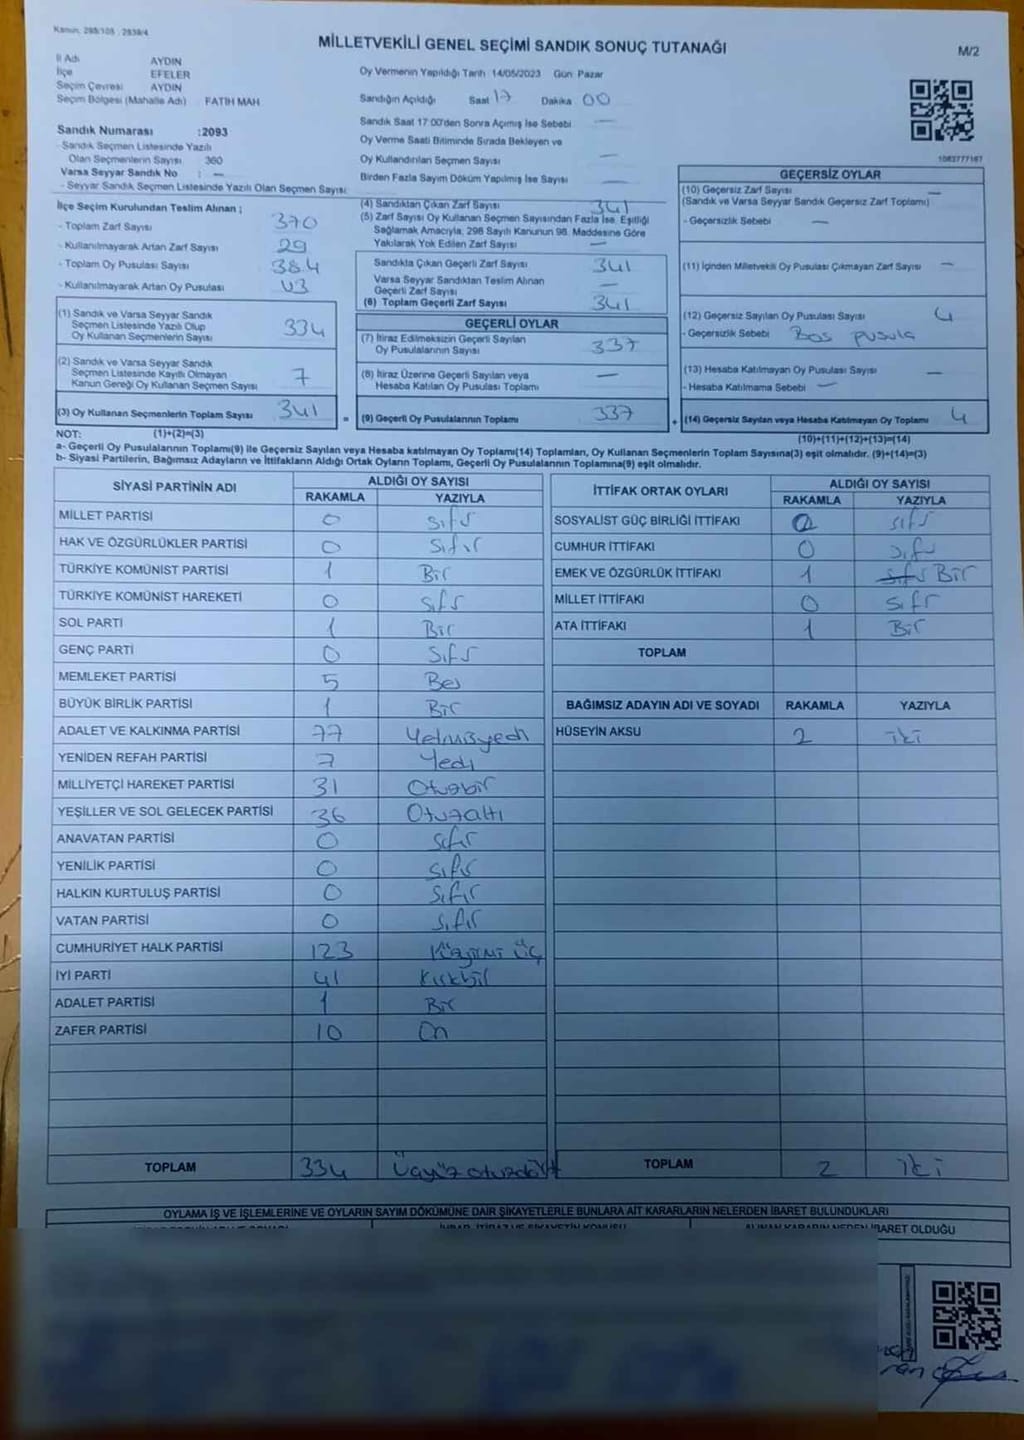 Kanun, 298/105 , 2839/4
MİLLETVEKİLİ GENEL SEÇİMİ SANDIK SONUÇ TUTANAĞI
M/2
İl Adı AYDIN
İlçe EFELER
Seçim Çevresi AYDIN
Seçim Bölgesi (Mahalle Adı) FATİH MAH
Oy Vermenin Yapıldığı Tarih 14/05/2023 Gün Pazar
Sandığın Açıldığı Saat 17 Dakika 00
Sandık Saat 17:00'den Sonra Açımış İse Sebebi —
Oy Verme Saati Bitiminde Sırada Bekleyen ve
Oy Kullandırılan Seçmen Sayısı —
Birden Fazla Sayım Döküm Yapılmış İse Sayısı —
Sandık Numarası :2093
- Sandık Seçmen Listesinde Yazılı
Olan Seçmenlerin Sayısı 360
Varsa Seyyar Sandık No : —
- Seyyar Sandık Seçmen Listesinde Yazılı Olan Seçmen Sayısı:
İlçe Seçim Kurulundan Teslim Alınan ;
- Toplam Zarf Sayısı 370
- Kullanılmayarak Artan Zarf Sayısı 29
- Toplam Oy Pusulası Sayısı 384
- Kullanılmayarak Artan Oy Pusulası 43
(1) Sandık ve Varsa Seyyar Sandık
Seçmen Listesinde Yazılı Olup
Oy Kullanan Seçmenlerin Sayısı 334
(2) Sandık ve Varsa Seyyar Sandık
Seçmen Listesinde Kayıtlı Olmayan
Kanun Gereği Oy Kullanan Seçmen Sayısı 7
(3) Oy Kullanan Seçmenlerin Toplam Sayısı 341
(4) Sandıktan Çıkan Zarf Sayısı 341
(5) Zarf Sayısı Oy Kullanan Seçmen Sayısından Fazla İse, Eşitliği
Sağlamak Amacıyla, 298 Sayılı Kanunun 98. Maddesine Göre
Yakılarak Yok Edilen Zarf Sayısı —
Sandıkta Çıkan Geçerli Zarf Sayısı 341
Varsa Seyyar Sandıktan Teslim Alınan
Geçerli Zarf Sayısı —
(6) Toplam Geçerli Zarf Sayısı 341
GEÇERLİ OYLAR
(7) İtiraz Edilmeksizin Geçerli Sayılan
Oy Pusulalarının Sayısı 337
(8) İtiraz Üzerine Geçerli Sayılan veya
Hesaba Katılan Oy Pusulası Toplamı —
= (9) Geçerli Oy Pusulalarının Toplamı 337
1063777167
GEÇERSİZ OYLAR
(10) Geçersiz Zarf Sayısı —
(Sandık ve Varsa Seyyar Sandık Geçersiz Zarf Toplamı)
- Geçersizlik Sebebi —
(11) İçinden Milletvekili Oy Pusulası Çıkmayan Zarf Sayısı —
(12) Geçersiz Sayılan Oy Pusulası Sayısı 4
- Geçersizlik Sebebi Bos pusula
(13) Hesaba Katılmayan Oy Pusulası Sayısı —
- Hesaba Katılmama Sebebi —
+ (14) Geçersiz Sayılan veya Hesaba Katılmayan Oy Toplamı 4
NOT: (1)+(2)=(3)
(10)+(11)+(12)+(13)=(14)
a- Geçerli Oy Pusulalarının Toplamı(9) ile Geçersiz Sayılan veya Hesaba katılmayan Oy Toplamı(14) Toplamları, Oy Kullanan Seçmenlerin Toplam Sayısına(3) eşit olmalıdır. (9)+(14)=(3)
b- Siyasi Partilerin, Bağımsız Adayların ve İttifakların Aldığı Ortak Oyların Toplamı, Geçerli Oy Pusulalarının Toplamına(9) eşit olmalıdır.
SİYASİ PARTİNİN ADI ALDIĞI OY SAYISI
RAKAMLA YAZIYLA
MİLLET PARTİSİ 0 sıfır
HAK VE ÖZGÜRLÜKLER PARTİSİ 0 Sıfır
TÜRKİYE KOMÜNİST PARTİSİ 1 Bir
TÜRKİYE KOMÜNİST HAREKETİ 0 sıfır
SOL PARTİ 1 Bir
GENÇ PARTİ 0 Sıfır
MEMLEKET PARTİSİ 5 Beş
BÜYÜK BİRLİK PARTİSİ 1 Bir
ADALET VE KALKINMA PARTİSİ 77 Yetmişyedi
YENİDEN REFAH PARTİSİ 7 Yedi
MİLLİYETÇİ HAREKET PARTİSİ 31 Otuzbir
YEŞİLLER VE SOL GELECEK PARTİSİ 36 Otuzaltı
ANAVATAN PARTİSİ 0 sıfır
YENİLİK PARTİSİ 0 sıfır
HALKIN KURTULUŞ PARTİSİ 0 Sıfır
VATAN PARTİSİ 0 Sıfır
CUMHURİYET HALK PARTİSİ 123 Yüzyirmi üç
İYİ PARTİ 41 Kırkbir
ADALET PARTİSİ 1 Bir
ZAFER PARTİSİ 10 On
TOPLAM 334 Üçyüz otuzdört
İTTİFAK ORTAK OYLARI ALDIĞI OY SAYISI
RAKAMLA YAZIYLA
SOSYALİST GÜÇ BİRLİĞİ İTTİFAKI 0 sıfır
CUMHUR İTTİFAKI 0 sıfır
EMEK VE ÖZGÜRLÜK İTTİFAKI 1 Bir
MİLLET İTTİFAKI 0 sıfır
ATA İTTİFAKI 1 Bir
TOPLAM
BAĞIMSIZ ADAYIN ADI VE SOYADI RAKAMLA YAZIYLA
HÜSEYİN AKSU 2 iki
TOPLAM 2 iki
OYLAMA İŞ VE İŞLEMLERİNE VE OYLARIN SAYIM DÖKÜMÜNE DAİR ŞİKAYETLERLE BUNLARA AİT KARARLARIN NELERDEN İBARET BULUNDUKLARI
İHBAR, İTİRAZ VE ŞİKAYETİN KONUSU ALINAN KARARIN NEDEN İBARET OLDUĞU